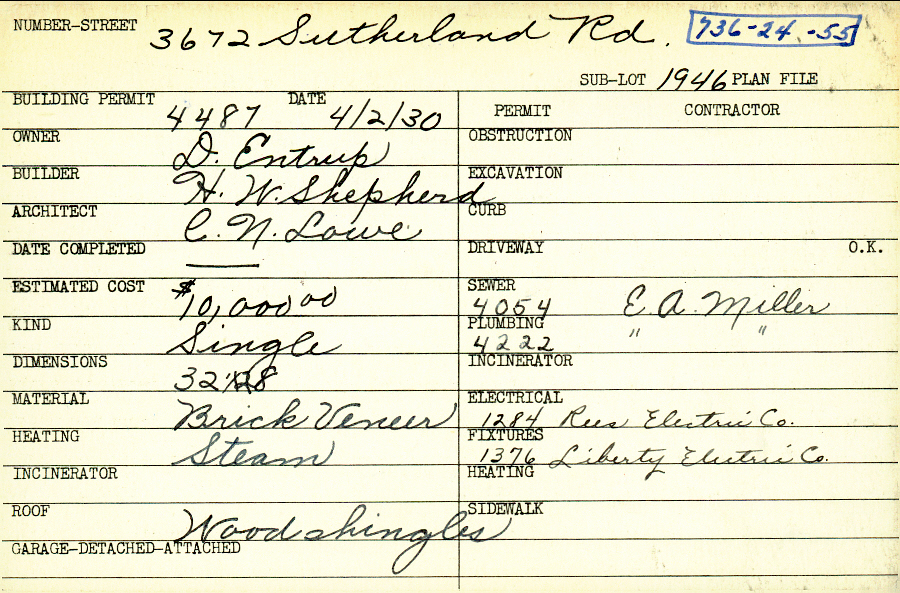 NUMBER-STREET 3672 Sutherland Rd. 736-24-55
SUB-LOT 1946 PLAN FILE
BUILDING PERMIT 4487 DATE 4/2/30
PERMIT CONTRACTOR
OWNER D. Entrup
OBSTRUCTION
BUILDER H. W. Shepherd
EXCAVATION
ARCHITECT C. N. Lowe
CURB
DATE COMPLETED —
DRIVEWAY O.K.
ESTIMATED COST $10,000.00
SEWER 4054 E. A. Miller
KIND Single
PLUMBING 4222 " "
DIMENSIONS 32'
INCINERATOR
MATERIAL Brick Veneer
ELECTRICAL 1284 Rees Electric Co.
HEATING Steam
FIXTURES 1376 Liberty Electric Co.
INCINERATOR
HEATING
ROOF Wood shingles
SIDEWALK
GARAGE-DETACHED-ATTACHED